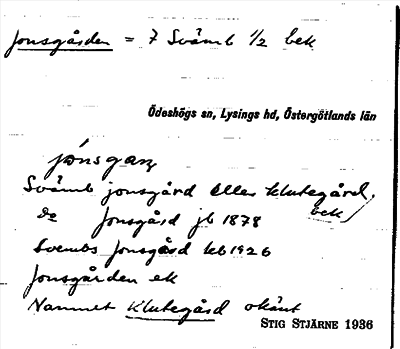 Jonsgården = 7 Svämb 1/2 bek
Ödeshögs sn, Lysings hd, Östergötlands län
Svämb jonsgård eller klutegård, bek
Do Jonsgård jb 1878
Svembs Jonsgård kb 1926
Jonsgården ek
Namnet Klutegård okänt
STIG STJÄRNE 1936